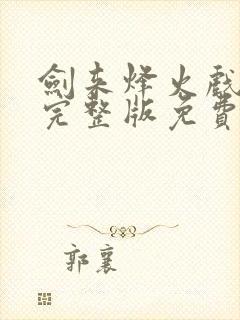 劍来烽火戲
完整版免費
郭襄